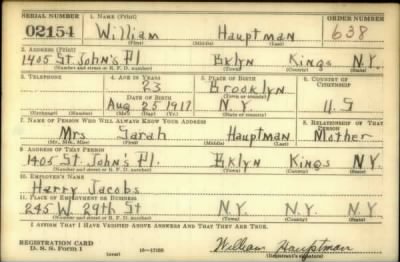 SERIAL NUMBER 1. NAME (Print) ORDER NUMBER
02154 William Hauptman 638
(First) (Middle) (Last)
2. ADDRESS (Print)
1405 St John's Pl. Bklyn Kings N.Y.
(Number and street or R. F. D. number) (Town) (County) (State)
3. TELEPHONE 4. AGE IN YEARS 5. PLACE OF BIRTH 6. COUNTRY OF CITIZENSHIP
23 Brooklyn
DATE OF BIRTH (Town or county)
Aug 25 1917 N.Y. U.S
(Exchange) (Number) (Mo.) (Day) (Yr.) (State or country)
7. NAME OF PERSON WHO WILL ALWAYS KNOW YOUR ADDRESS 8. RELATIONSHIP OF THAT PERSON
Mrs Sarah Hauptman Mother
(Mr., Mrs., Miss) (First) (Middle) (Last)
9. ADDRESS OF THAT PERSON
1405 St. John's Pl. Bklyn Kings N.Y.
(Number and street or R. F. D. number) (Town) (County) (State)
10. EMPLOYER'S NAME
Harry Jacobs
11. PLACE OF EMPLOYMENT OR BUSINESS
245 W 29th St N.Y. N.Y. N.Y.
(Number and street or R. F. D. number) (Town) (County) (State)
I AFFIRM THAT I HAVE VERIFIED ABOVE ANSWERS AND THAT THEY ARE TRUE.
REGISTRATION CARD
D. S. S. Form 1 (over) William Hauptman
(Registrant's signature)